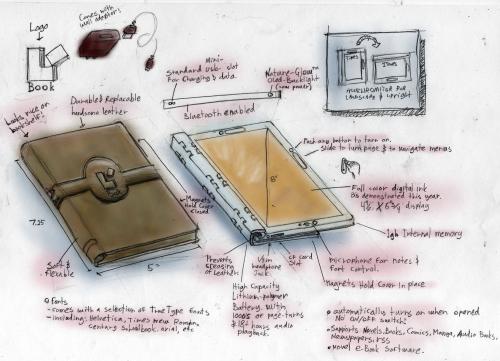 Logo
Book
Comes with
wall adaptor!
Mini-
Standard USB- slot
For Charging & data.
Nature-Glow™
OLED-Backlight
(low power)
Bluetooth enabled
TIMES
TIMES
Accelerometer for
landscape & upright
Looks nice on
bookshelf!
Durable & Replacable
handsome leather
7.25
Soft &
flexable
5"
Magnets
Hold Cover
closed
8"
Push any button to turn on.
Slide to turn page & to navigate menus
Full color digital ink
as demonstrated this year.
display
1gb Internal memory
Prevents
creasing
of leather
High Capacity
Lithium-polymer
Battery. With
1000's of page-turns
& 18+ hours audio
playback.
headphone
Jack
CF card
Slot
Microphone for notes &
font control.
Magnets Hold Cover in place
Fonts
-comes with a selection of True Type fonts
-including: Helvetica, Times new Roman,
century schoolbook, arial, etc
automatically turns on when opened
No on/off switch!
Supports Novels, Books, Comics, Manga, Audio Books,
Newspapers, RSS
Novel e-Book Software.